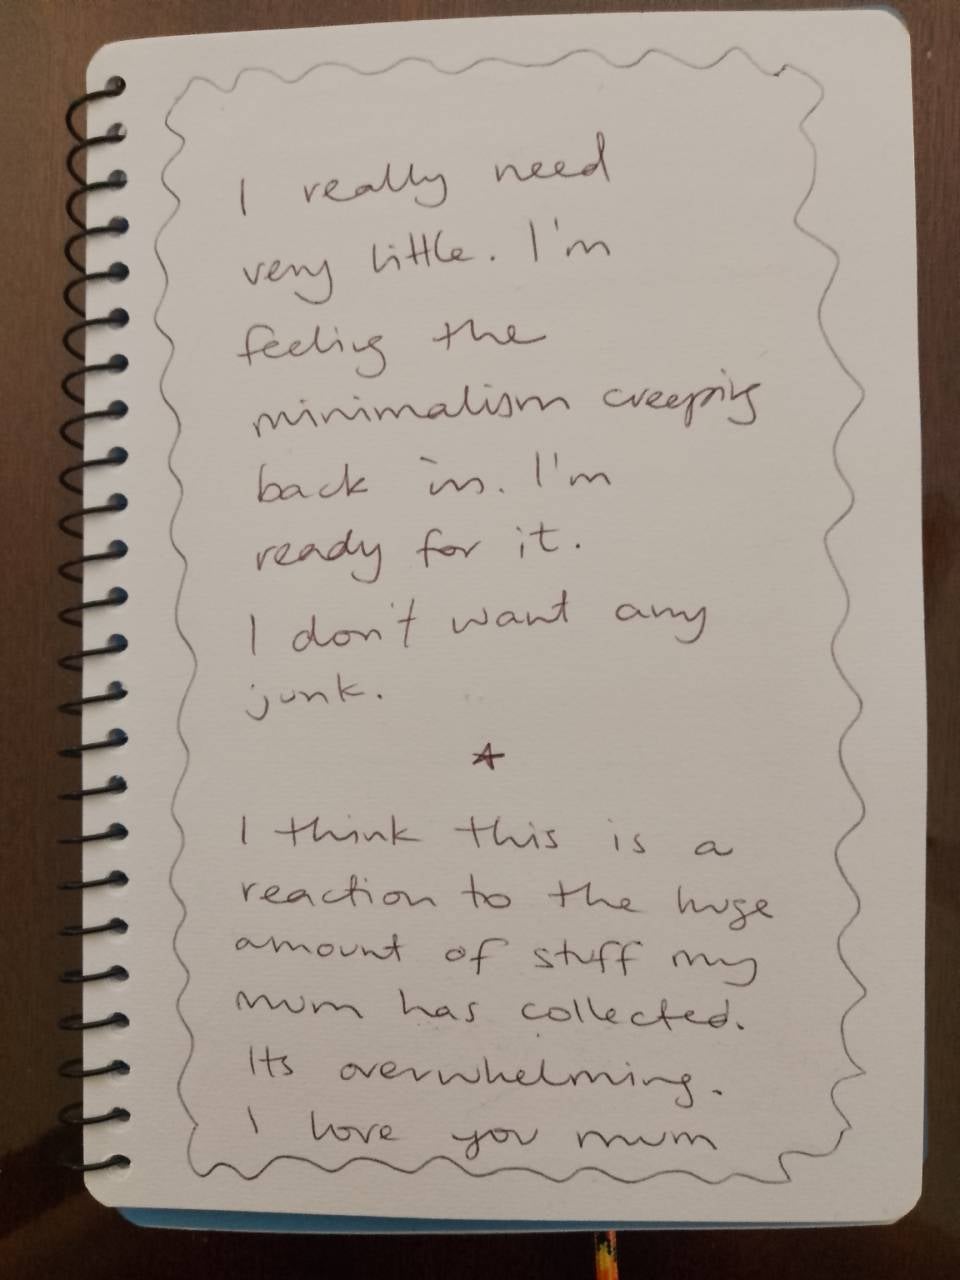 I really need
very little. I'm
feeling the
minimalism creeping
back in. I'm
ready for it.
I don't want any
junk.
I think this is a
reaction to the huge
amount of stuff my
mum has collected.
Its overwhelming.
I love you mum